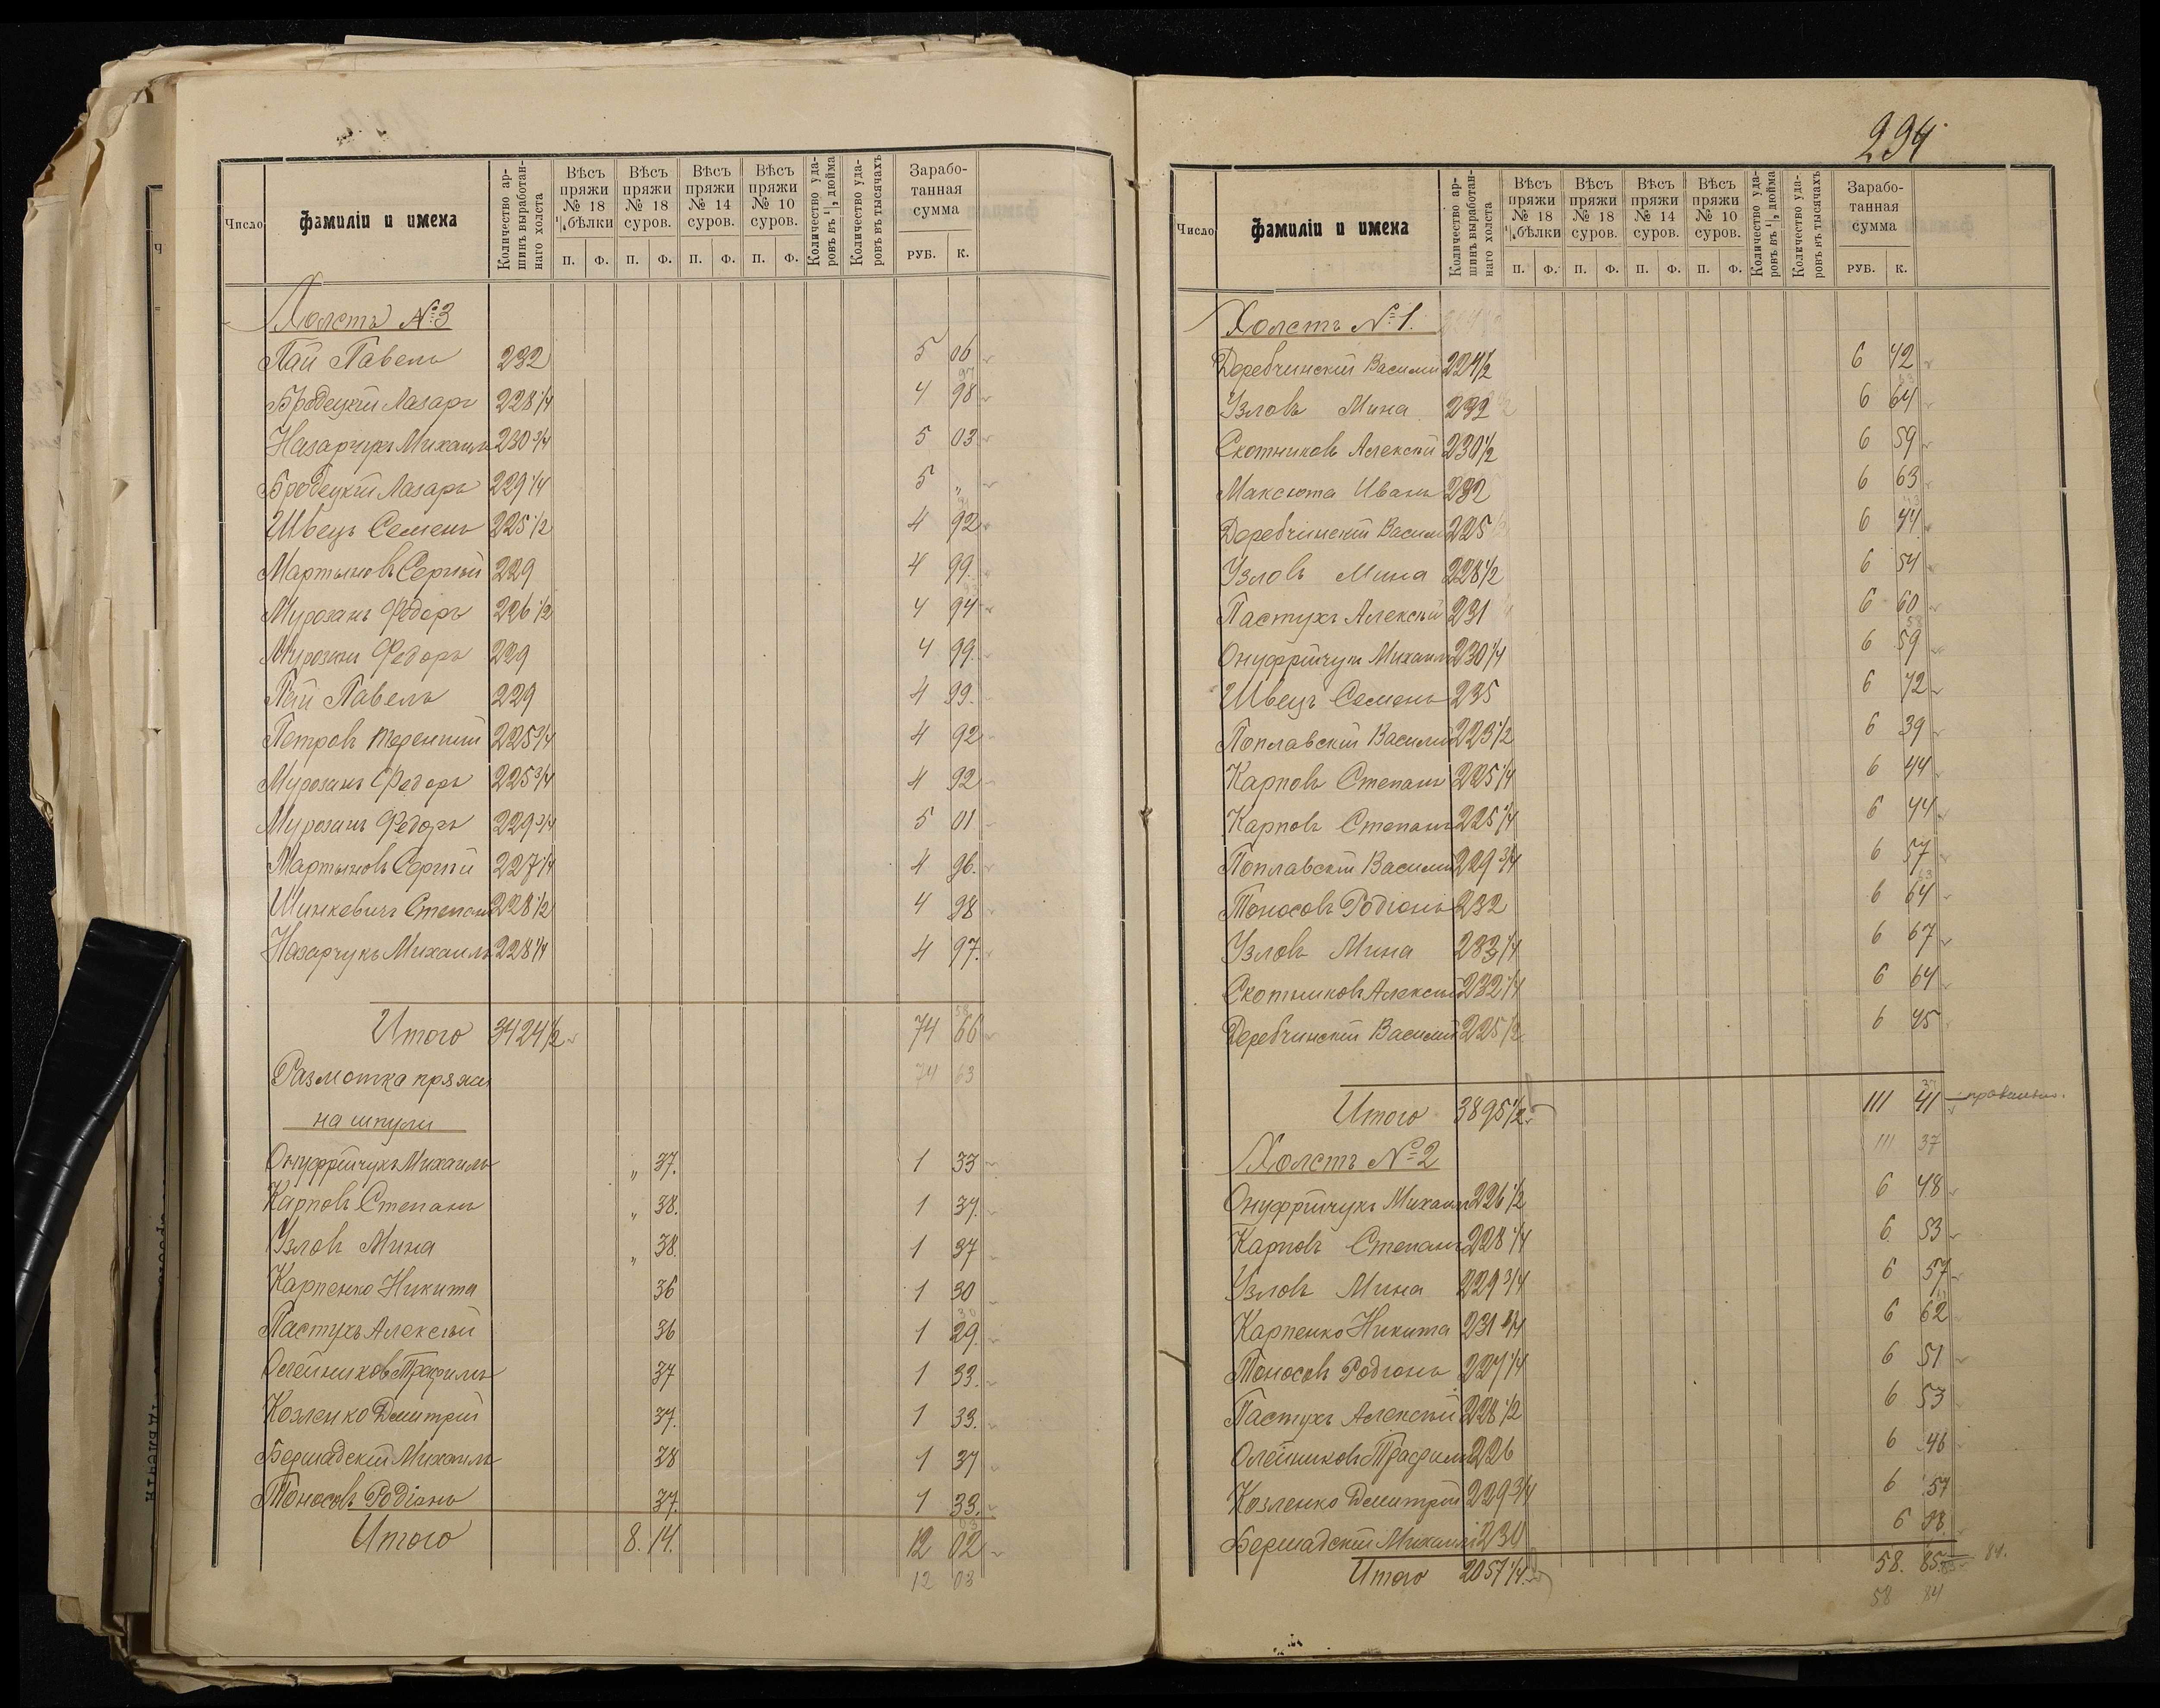 Число
Фамиліи и имена
Количество ар-
шинъ выработан-
наго холста
Вѣсъ пряжи № 18 ¼ бѣлки П. Ф.
Вѣсъ пряжи № 18 суров. П. Ф.
Вѣсъ пряжи № 14 суров. П. Ф.
Вѣсъ пряжи № 10 суров. П. Ф.
Количество уда-
ровъ въ ¼ дюйма
Количество уда-
ровъ въ тысячахъ
Зарабо-
танная
сумма
РУБ. К.
Холстъ №3
Пай Павелъ 232 5 06
Бродецкій Лазарь 228 1/4 4 98
Назарчукъ Михаилъ 230 3/4 5 03
Бродецкій Лазарь 229 1/4 5 "
Швецъ Семенъ 225 1/2 4 92
Мартыновъ Сергѣй 229 4 99
Мурозанъ Федоръ 226 1/2 4 94
Мурозанъ Федоръ 229 4 99
Пай Павелъ 229 4 99
Петровъ Терентій 225 3/4 4 92
Мурозанъ Федоръ 225 3/4 4 92
Мурозанъ Федоръ 229 3/4 5 01
Мартыновъ Сергѣй 227 1/4 4 96
Шинкевичъ Степанъ 228 1/2 4 98
Назарчукъ Михаилъ 228 1/4 4 97
Итого 3424 1/2 74 66
74 63
Размотка пряжи
на шпули
Онуфрійчукъ Михаилъ " 37. 1 33
Карповъ Степанъ " 38. 1 37
Узловъ Мина " 38. 1 37
Карпенко Никита 36 1 30
Пастухъ Алексѣй 36 1 29
Олейниковъ Трофимъ 37 1 33
Козленко Дмитрій 37. 1 33
Бершадскій Михаилъ 38 1 37
Тоносовъ Родіонъ 37. 1 33
Итого 8. 14. 12 02
12 03
294
Число
Фамиліи и имена
Количество ар-
шинъ выработан-
наго холста
Вѣсъ пряжи № 18 ¼ бѣлки П. Ф.
Вѣсъ пряжи № 18 суров. П. Ф.
Вѣсъ пряжи № 14 суров. П. Ф.
Вѣсъ пряжи № 10 суров. П. Ф.
Количество уда-
ровъ въ ¼ дюйма
Количество уда-
ровъ въ тысячахъ
Зарабо-
танная
сумма
РУБ. К.
Холстъ №1.
Деребчинскій Василій 224 1/2 6 42
Узловъ Мина 232 6 64
Скотниковъ Алексѣй 230 1/2 6 59
Максюта Иванъ 232 6 63
Деребчинскій Василій 225 6 44
Узловъ Мина 228 1/2 6 54
Пастухъ Алексѣй 231 6 60
Онуфрійчукъ Михаилъ 230 1/4 6 59
Швецъ Семенъ 235 6 72
Поплавскій Василій 223 1/2 6 39
Карповъ Степанъ 225 1/4 6 44
Карповъ Степанъ 225 1/4 6 44
Поплавскій Василій 229 3/4 6 57
Тоносовъ Родіонъ 232 6 64
Узловъ Мина 233 1/4 6 67
Скотниковъ Алексѣй 232 1/4 6 64
Деребчинскій Василій 225 1/2 6 45
Итого 3895 1/2 111 41 правильно.
111 37
Холстъ №2
Онуфрійчукъ Михаилъ 226 1/2 6 48
Карповъ Степанъ 228 1/4 6 53
Узловъ Мина 229 3/4 6 57
Карпенко Никита 231 1/4 6 62
Тоносовъ Родіонъ 227 1/4 6 51
Пастухъ Алексѣй 228 1/2 6 53
Олейниковъ Трофимъ 226 6 46
Козленко Дмитрій 229 3/4 6 57
Бершадскій Михаилъ 230 6 58
Итого 2057 1/4 58. 85 84.
58 84